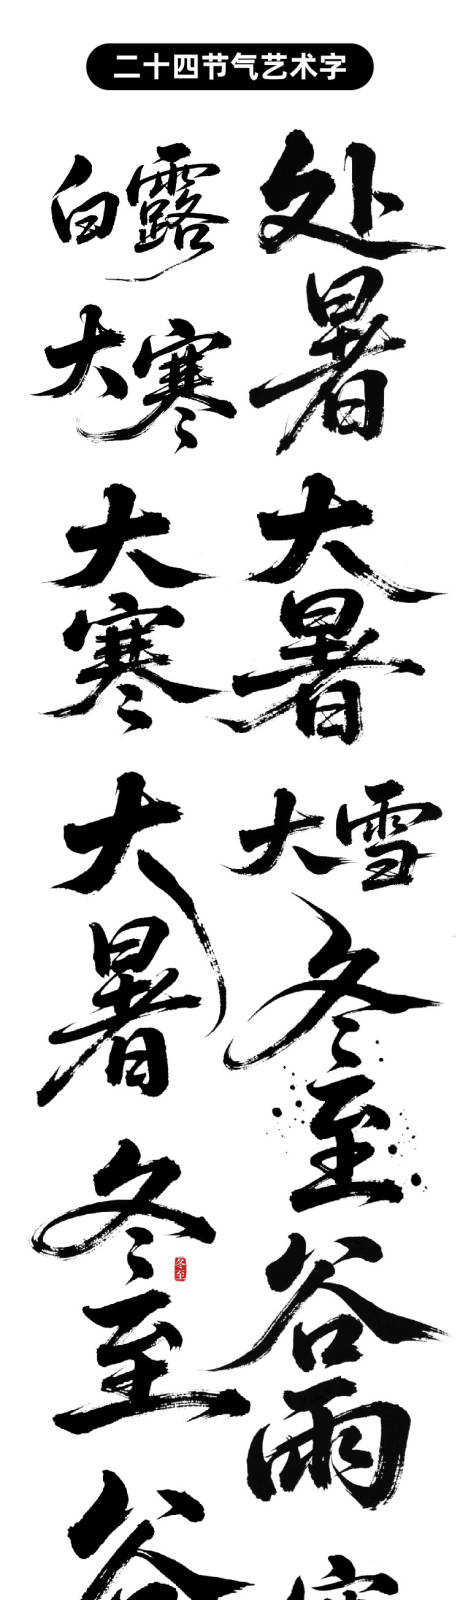 二十四节气艺术字
白露
处暑
大寒
大寒
大暑
大暑
大雪
冬至
冬至
冬至
谷雨
谷